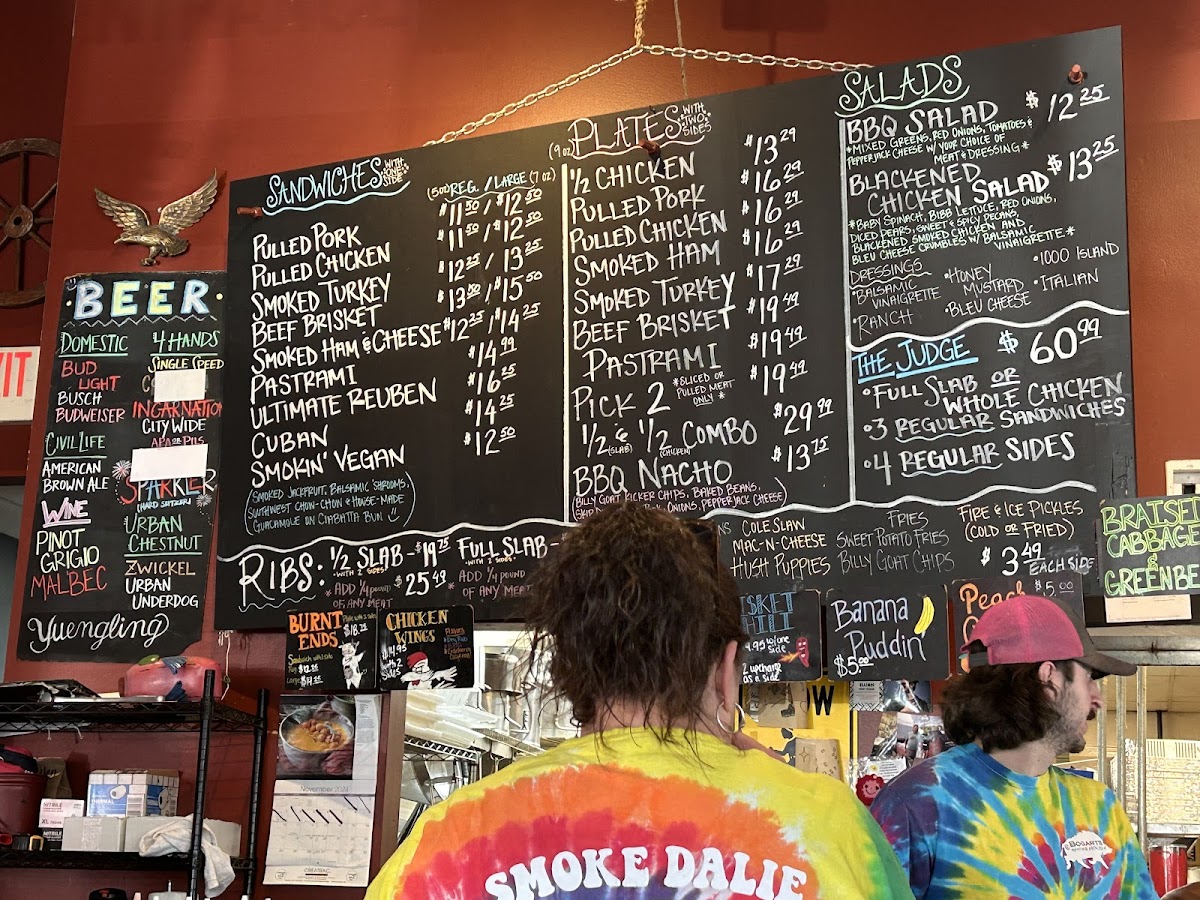 SANDWICHES WITH ONE SIDE
(5OZ) REG. / LARGE (7 OZ)
PULLED PORK $11.50 / $12.50
PULLED CHICKEN $11.50 / $12.50
SMOKED TURKEY $12.25 / 13.25
BEEF BRISKET $13.50 / $15.50
SMOKED HAM & CHEESE $12.25 / $14.25
PASTRAMI $14.99
ULTIMATE REUBEN $16.25
CUBAN $14.25
SMOKIN' VEGAN $12.50
(SMOKED JACKFRUIT, BALSAMIC 'SHROOMS,
SOUTHWEST CHOW-CHOW & HOUSE-MADE
GUACAMOLE ON CIABATTA BUN)
(9 OZ) PLATES WITH TWO SIDES
1/2 CHICKEN $13.29
PULLED PORK $16.29
PULLED CHICKEN $16.29
SMOKED HAM $16.29
SMOKED TURKEY $17.29
BEEF BRISKET $19.49
PASTRAMI $19.49
PICK 2 *SLICED OR PULLED MEAT ONLY* $19.49
1/2 (SLAB) & 1/2 (CHICKEN) COMBO $29.99
BBQ NACHO $13.75
BILLY GOAT KICKER CHIPS, BAKED BEANS,
ONIONS, PEPPERJACK CHEESE)
SALADS
BBQ SALAD $12.25
*MIXED GREENS, RED ONIONS, TOMATOES &
PEPPERJACK CHEESE W/ YOUR CHOICE OF
MEAT & DRESSING*
BLACKENED
CHICKEN SALAD $13.25
*BABY SPINACH, BIBB LETTUCE, RED ONIONS,
DICED PEARS, SWEET & SPICY PECANS,
BLACKENED SMOKED CHICKEN AND
BLEU CHEESE CRUMBLES W/ BALSAMIC
VINAIGRETTE*
DRESSINGS
•BALSAMIC VINAIGRETTE
•RANCH
•HONEY MUSTARD
•BLEU CHEESE
•1000 ISLAND
•ITALIAN
THE JUDGE $60.99
•FULL SLAB OR
WHOLE CHICKEN
•3 REGULAR SANDWICHES
•4 REGULAR SIDES
RIBS: 1/2 SLAB - $19.75
WITH 2 SIDES
*ADD 1/4 POUND $25.49
OF ANY MEAT
FULL SLAB -
WITH 2 SIDES
ADD 1/4 POUND
OF ANY MEAT
COLE SLAW
MAC-N-CHEESE
HUSH PUPPIES
FRIES
SWEET POTATO FRIES
BILLY GOAT CHIPS
FIRE & ICE PICKLES
(COLD OR FRIED)
$3.49
EACH SIDE
•BEER•
DOMESTIC
BUD
LIGHT
BUSCH
BUDWEISER
CIVIL LIFE
AMERICAN
BROWN ALE
WINE
PINOT
GRIGIO
MALBEC
Yuengling
4 HANDS
SINGLE SPEED
INCARNATION
CITY WIDE
APA OR PILS
SPARKLER
(HARD SELTZER)
URBAN
CHESTNUT
ZWICKEL
URBAN
UNDERDOG
BURNT
ENDS
CHICKEN
WINGS
Banana
Puddin'
$5.00
$5.00
BRAISED
CABBAGE
&
GREEN BE
November 2024
SMOKE DALIE
BOGARTS